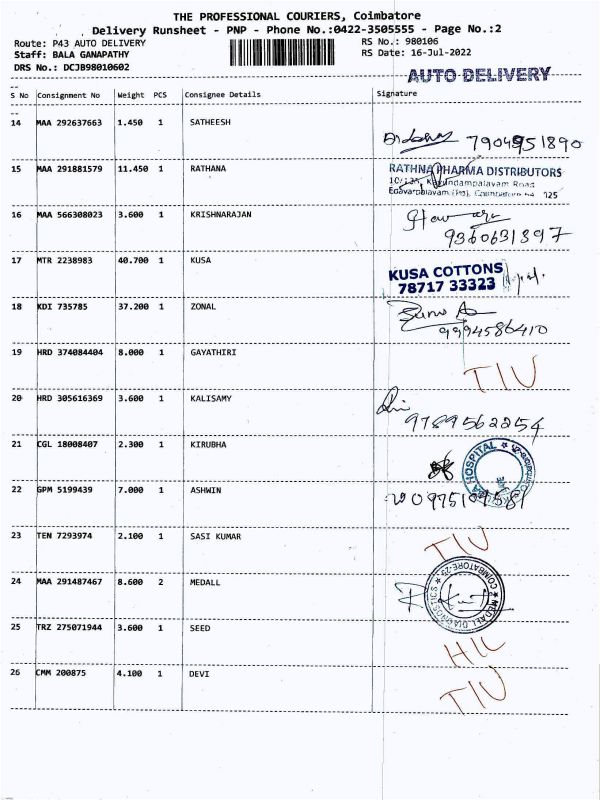 THE PROFESSIONAL COURIERS, Coimbatore
Delivery Runsheet - PNP - Phone No.:0422-3505555 - Page No.:2
Route: P43 AUTO DELIVERY
RS No.: 980106
Staff: BALA GANAPATHY
RS Date: 16-Jul-2022
DRS No.: DCJB98010602
AUTO DELIVERY
S No Consignment No Weight PCS Consignee Details Signature
14 MAA 292637663 1.450 1 SATHEESH
7904951890
15 MAA 291881579 11.450 1 RATHANA
RATHNA PHARMA DISTRIBUTORS
16 MAA 566308023 3.600 1 KRISHNARAJAN
9360631397
17 MTR 2238983 40.700 1 KUSA
KUSA COTTONS
78717 33323
18 KDI 735785 37.200 1 ZONAL
9994586410
19 HRD 374084404 8.000 1 GAYATHIRI
TIU
20 HRD 305616369 3.600 1 KALISAMY
9789562254
21 CGL 18008407 2.300 1 KIRUBHA
HOSPITAL
22 GPM 5199439 7.000 1 ASHWIN
23 TEN 7293974 2.100 1 SASI KUMAR
TIU
24 MAA 291487467 8.600 2 MEDALL
MEDALL DIAGNOSTICS
25 TRZ 275071944 3.600 1 SEED
26 CMM 200875 4.100 1 DEVI
TIU